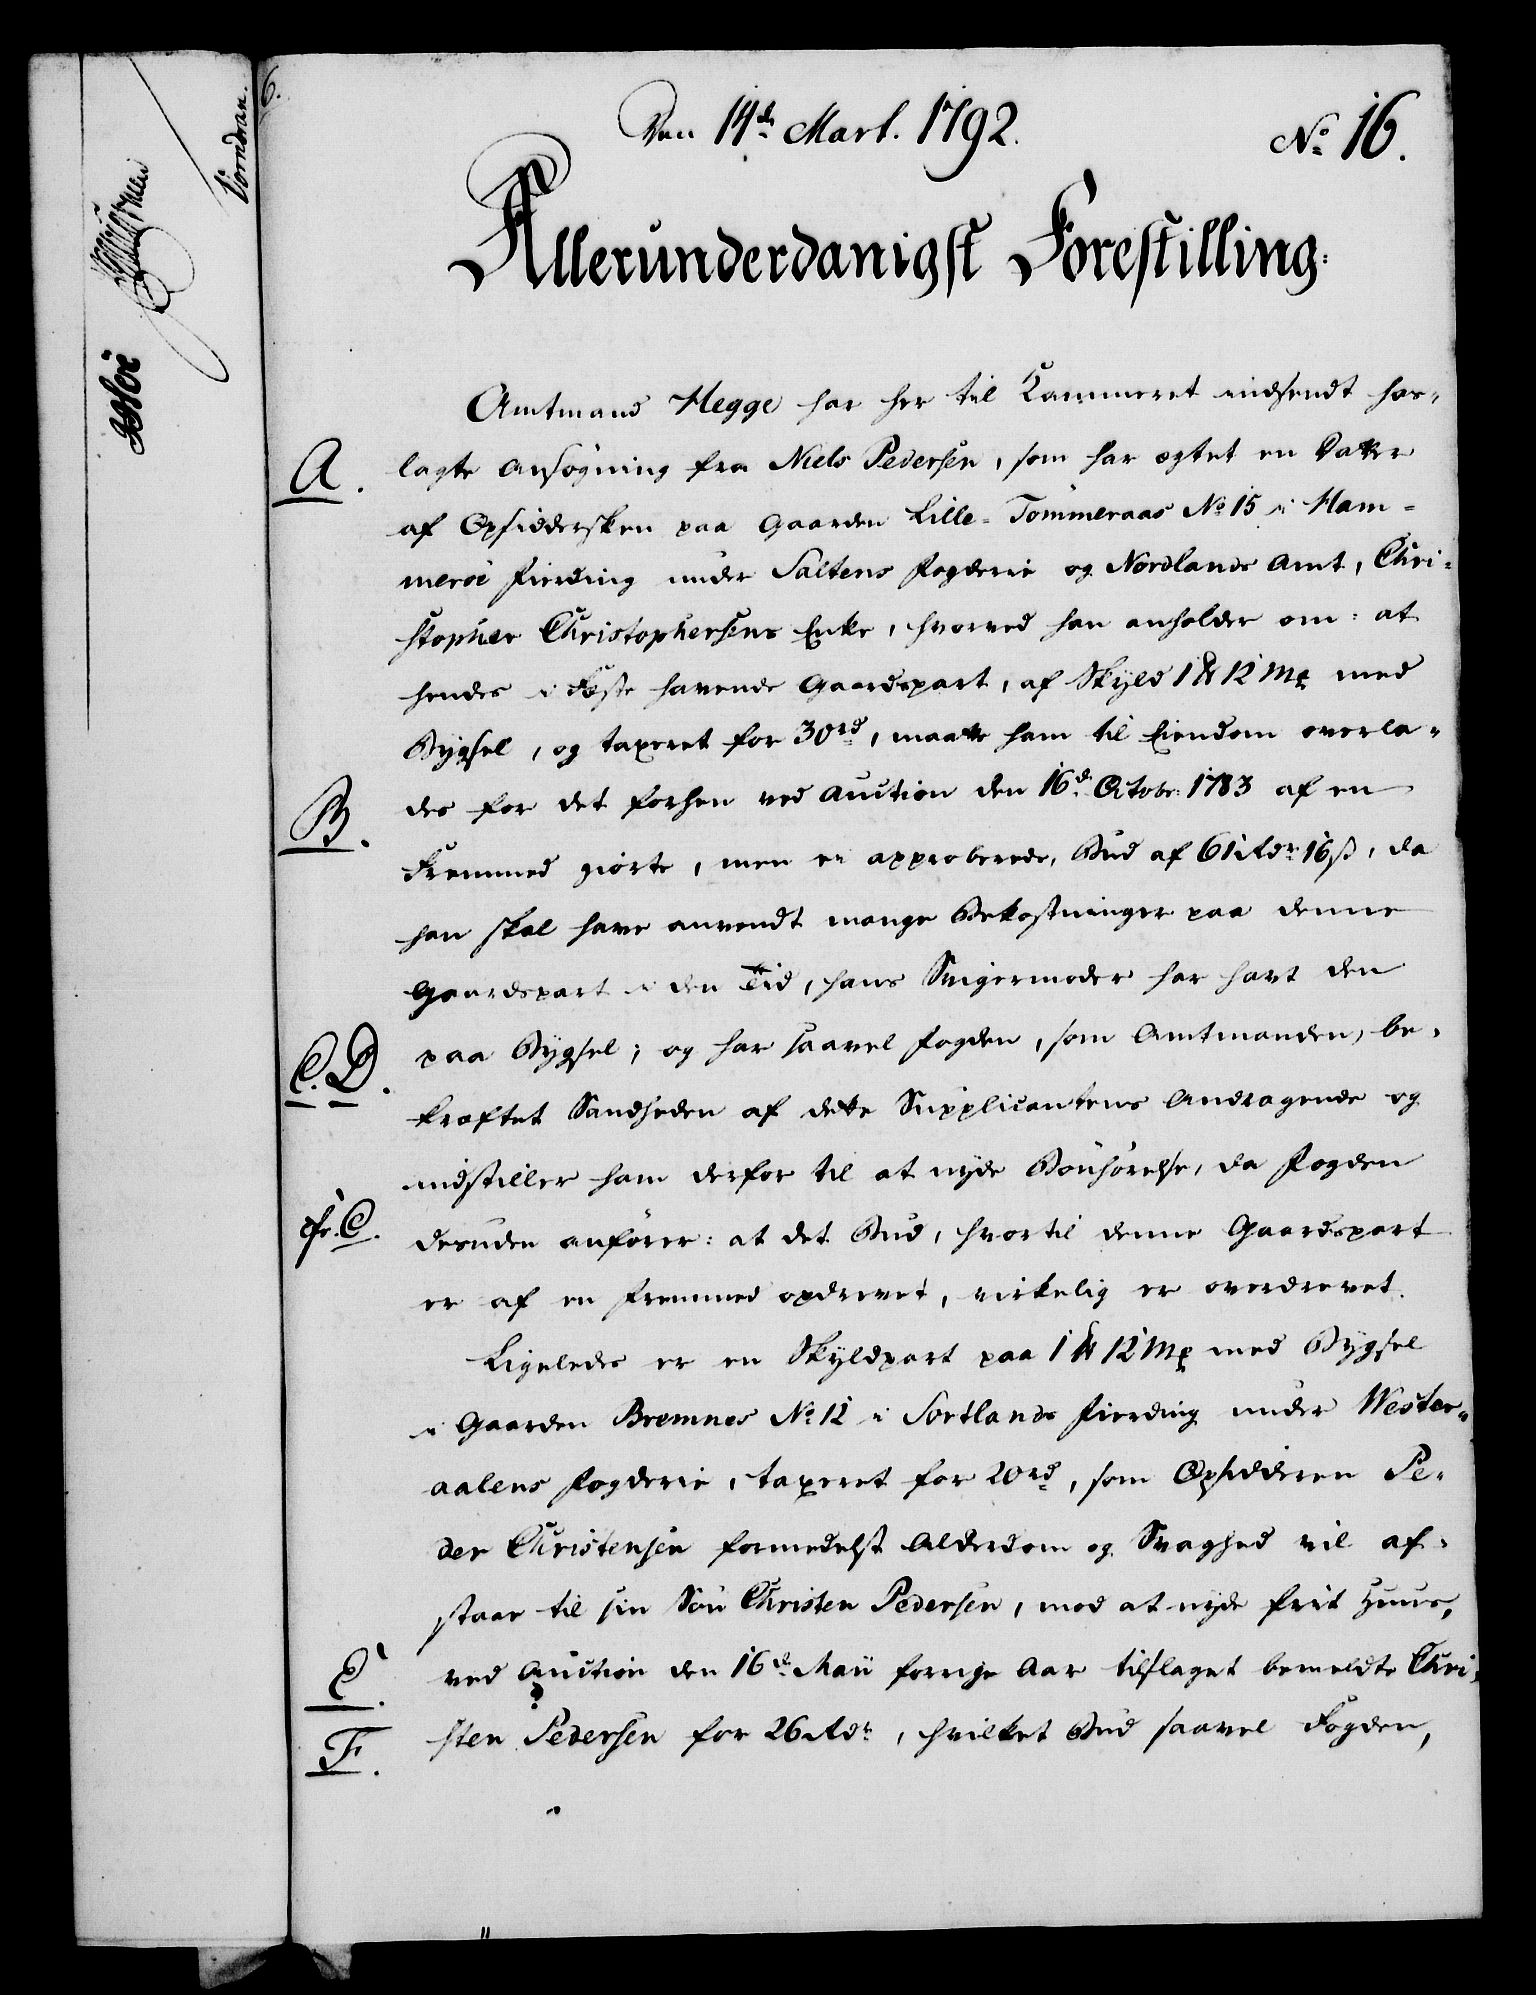 Den 14de Mart. 1792.
No 16.
Allerunderdanigst Forestilling.
Amtmand Hegge har her til Kammeret indsendt hos-
A. lagte Ansøgning fra Niels Pedersen, som har ægtet en Datter
af Opsidersken paa Gaarden Lille-Tömmeraas No 15 i Ham-
meröe Fierding under Saltens Fogderie og Nordlands Amt, Chri-
stopher Christophersens Enke, hvorved han anholder om: at
hendes i Fæste havende Gaardspart, af Skyld 1 ℔ 12 Mk med
Bygsel, og taxeret for 30 rd, maatte ham til Eiendom overla-
B. des for det forhen ved Auction den 16de Octobr: 1783 af en
Fremmed giorte, men ei approberede, Bud af 61 Rdr 16 ß, da
han skal have anvendt mange Bekostninger paa denne
Gaardspart i den Tid, hans Svigermoder har havt den
C. D. paa Bygsel; og har saavel Fogden, som Amtmanden, be-
kræftet Sandheden af dette Supplicantens Andragende og
indstiller ham derfor til at nyde Bönhörelse, da Fogden
cfr. C. desuden anförer: at det Bud, hvortil denne Gaardspart
er af en Fremmed opdrevet, virkelig er overdrevet.
Ligeledes er en Skyldpart paa 1 ℔ 12 Mk med Bygsel
i Gaarden Bremnes No 12 i Sortlands Fierding under Wester-
aalens Fogderie, taxeret for 20 rd, som Opsidderen Pe-
der Christensen formedelst Alderdom og Svaghed vil af-
staae til sin Sön Christen Pedersen, mod at nyde frit Huus,
E. ved Auction den 16de Maii forrige Aar tilslaget bemeldte Chri-
F. sten Pedersen for 26 Rdr, hvilket Bud saavel Fogden,